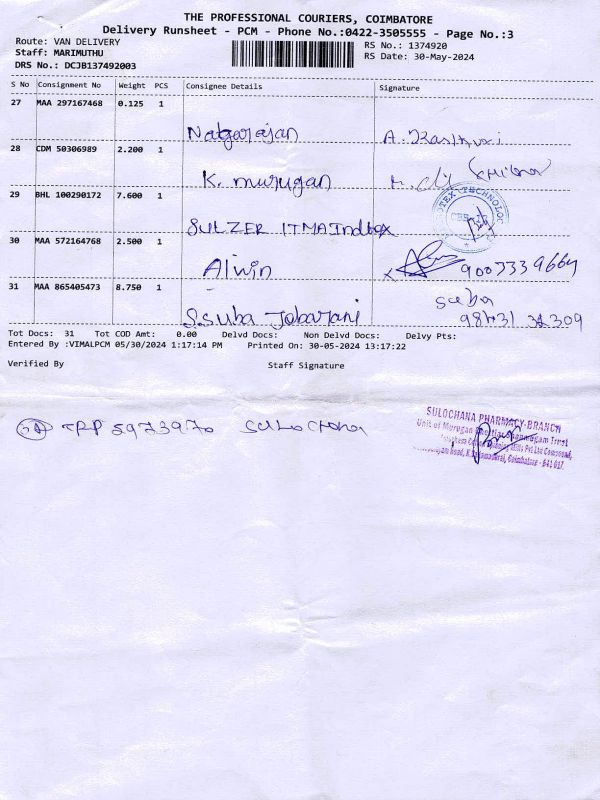 THE PROFESSIONAL COURIERS, COIMBATORE
Delivery Runsheet - PCM - Phone No.:0422-3505555 - Page No.:3
Route: VAN DELIVERY
RS No.: 1374920
Staff: MARIMUTHU
RS Date: 30-May-2024
DRS No.: DCJB137492003
S No Consignment No Weight PCS Consignee Details Signature
27 MAA 297167468 0.125 1
Nagarajan A.
28 CDM 50306989 2.200 1
K. murugan
29 BHL 100290172 7.600 1
SULZER ITMA
30 MAA 572164768 2.500 1
Alwin 9007339664
31 MAA 865405473 8.750 1
Suba
S.Suba
Tot Docs: 31 Tot COD Amt: 0.00 Delvd Docs: Non Delvd Docs: Delvy Pts:
Entered By :VIMALPCM 05/30/2024 1:17:14 PM Printed On: 30-05-2024 13:17:22
Verified By Staff Signature
5973970 Sulochana
SULOCHANA PHARMACY-BRANCH
Unit of Murugan Trust
Mills Pvt Ltd Compound,
Road, Coimbatore - 641 017.